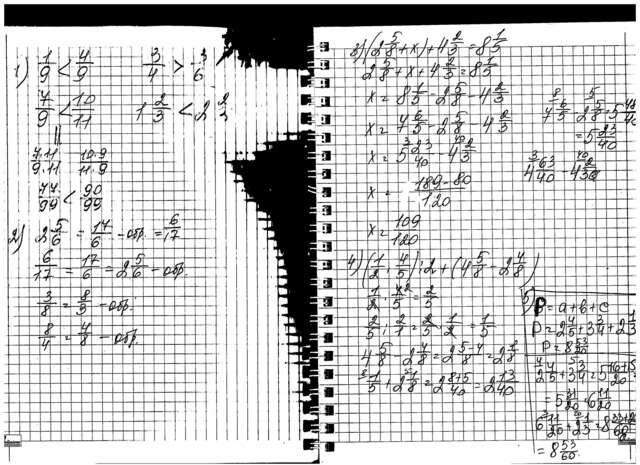 1) 1/9 < 4/9   3/4 > 3/6
7/9 < 10/11   1 2/3 < 2 2/3
7·11/9·11   10·9/11·9
77/99 < 90/99
2) 2 5/6 = 17/6 - обр. = 6/17
6/17 = 17/6 = 2 5/6 - обр.
3/8 = 8/3 - обр.
8/4 = 4/8 - обр.
3) (2 5/8 + x) + 4 2/3 = 8 1/5
2 5/8 + x + 4 2/3 = 8 1/5
x = 8 1/5 - 2 5/8 - 4 2/3
x = 7 6/5 - 2 5/8 - 4 2/3
x = 5 23/40 - 4 2/3
x = 189-80/120
x = 109/120
7 6/5 - 2 5/8 = 5 48
= 5 23/40
4 63/40 - 4
4) (1/2 · 4/5) : 2 + (4 5/8 - 2 4/8)
1/2 · 4/5 = 2/5
2/5 : 2/1 = 2/5 · 1/2 = 1/5
4 5/8 - 2 4/8 = 2 5-4/8 = 2 1/8
1/5 + 2 1/8 = 2 8+5/40 = 2 13/40
5)
P = a + b + c
P = 2 4/5 + 3 3/4 + 2 1
P = 8 53/60
2 4/5 + 3 3/4 = 5 16+15
= 5 31/20 = 6 11/20
6 11/20 + 2 1/3 = 8 33+20/60
= 8 53/60.